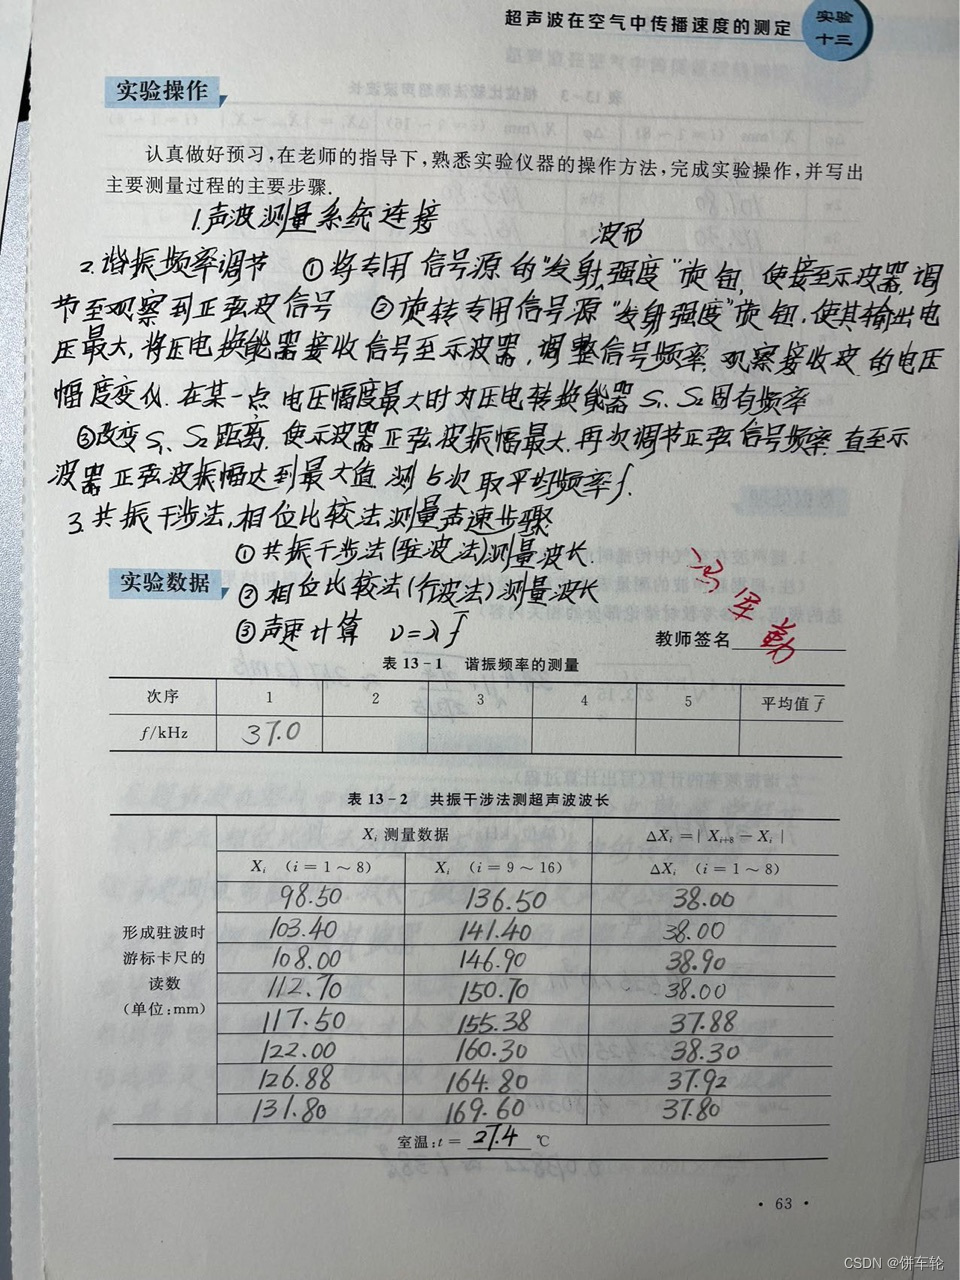 超声波在空气中传播速度的测定
实验
十三
实验操作
认真做好预习,在老师的指导下,熟悉实验仪器的操作方法,完成实验操作,并写出
主要测量过程的主要步骤.
1.声波测量系统连接
波形
2.谐振频率调节 ①将专用信号源的"发射强度"旋钮,使接至示波器,调
节至观察到正弦波信号 ②旋转专用信号源"发射强度"旋钮,使其输出电
压最大,将压电换能器接收信号至示波器,调整信号频率,观察接收波的电压
幅度变化.在某一点电压幅度最大时为压电转换能器S₁、S₂固有频率
③改变S₁、S₂距离,使示波器正弦波振幅最大.再次调节正弦信号频率,直至示
波器正弦波振幅达到最大值.测5次取平均频率f.
3.共振干涉法,相位比较法测量声速步骤
①共振干涉法(驻波法)测量波长.
实验数据
②相位比较法(行波法)测量波长
③声速计算 v=λf̄
教师签名
表 13-1 谐振频率的测量
次序 1 2 3 4 5 平均值 f̄
f/kHz 37.0
表 13-2 共振干涉法测超声波波长
Xᵢ 测量数据 ΔXᵢ=|Xᵢ₊₈-Xᵢ|
Xᵢ (i=1~8) Xᵢ (i=9~16) ΔXᵢ (i=1~8)
98.50 136.50 38.00
形成驻波时 103.40 141.40 38.00
游标卡尺的 108.00 146.90 38.90
读数 112.70 150.70 38.00
(单位:mm) 117.50 155.38 37.88
122.00 160.30 38.30
126.88 164.80 37.92
131.80 169.60 37.80
室温:t= 27.4 ℃
· 63 ·
CSDN @饼车轮